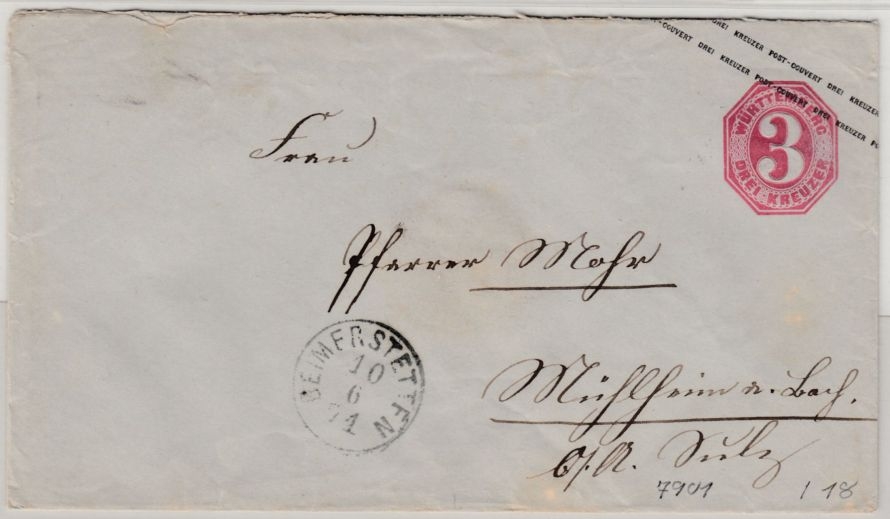 DREI KREUZER POST-COUVERT DREI KREUZER
POST-COUVERT DREI KREUZER POST-COUVERT DREI KREUZER
WÜRTTEMBERG
3
DREI KREUZER
Frau
Pfarrer Mohr
BEIMERSTETTEN
10
6
71
Mühlheim a. Bach.
O/A. Sulz
7901 / 18